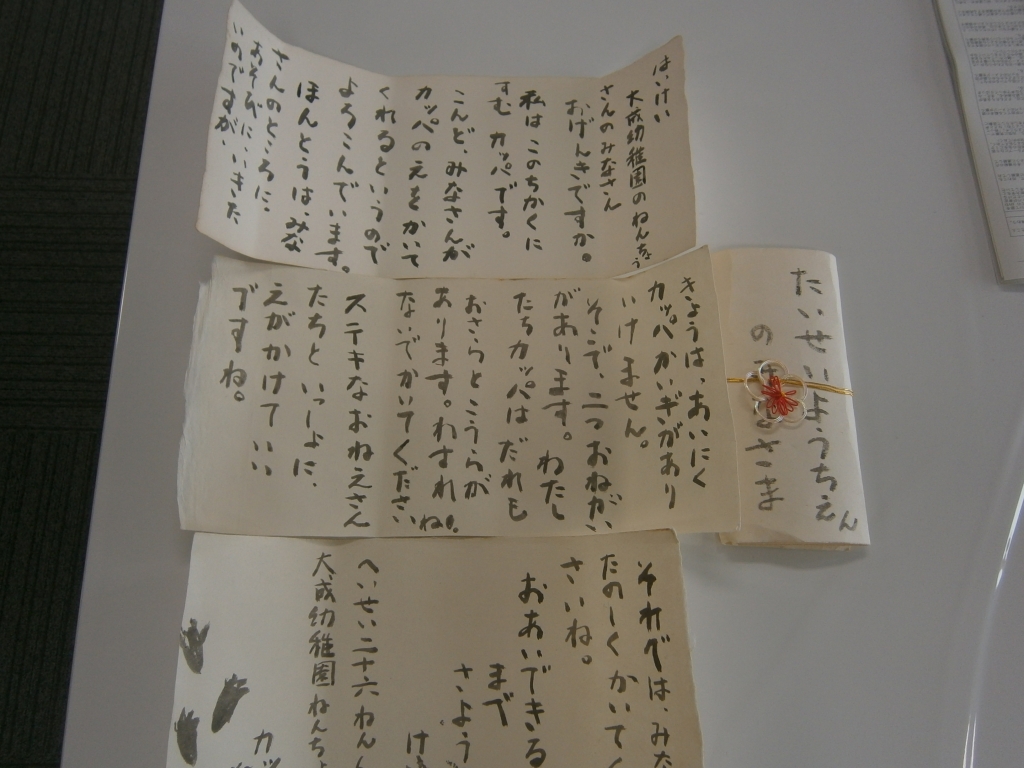 はいけい
大成幼稚園のねんちょう
さんのみなさん
おげんきですか。
私はこのちかくに
すむカッパです。
こんど、みなさんが
カッパのえをかいて
くれるというので
よろこんでいます。
ほんとうは、みな
さんのところに、
おそびに、いきた
いのですが、
きょうは、あいにく
カッパかいぎがあり
いけません。
そこで、二つおねがい
があります。わたし
たちカッパはだれも
おさらとこうらが
あります。わすれ
ないでかいてくださいね。
ステキなおねえさん
たちといっしょに、
えがかけていい
ですね。
それでは、みな
たのしくかいてく
さいね。
おあいできる
まで
さよう
へいせい二十六ねん
大成幼稚園ねんちょ
カッ
たいせいようちえん
の さま